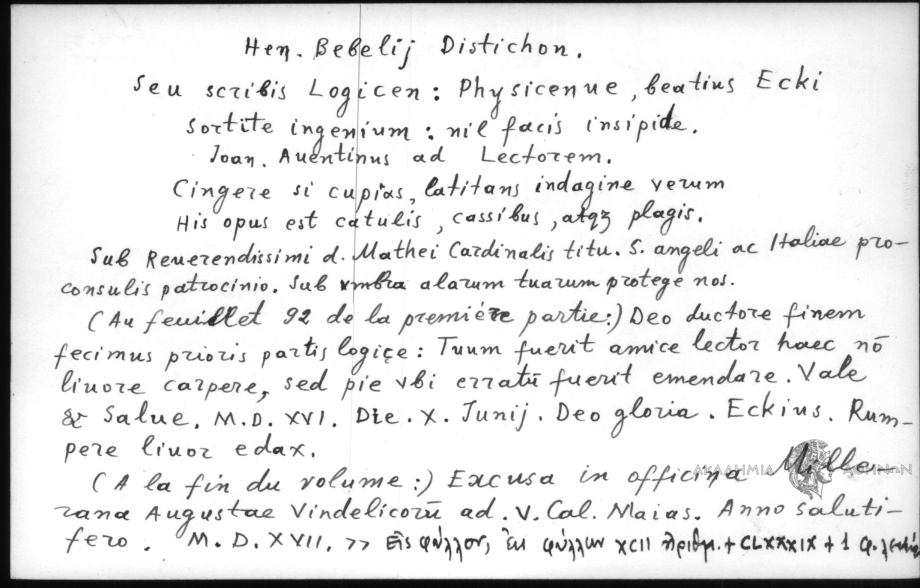 Hen. Bebelij Distichon.
Seu scribis Logicen: Physicenue, beatius Ecki
Sortite ingenium: nil facis insipide.
Joan. Auentinus ad Lectorem.
Cingere si cupias, latitans indagine verum
His opus est catulis, cassibus, atqȝ plagis.
Sub Reuerendissimi d. Mathei Cardinalis titu. S. angeli ac Italiae pro-
consulis patrocinio. Sub vmbra alarum tuarum protege nos.
(Au feuillet 92 de la première partie:) Deo ductore finem
fecimus prioris partis logiçe: Tuum fuerit amice lector haec nō
liuore carpere, sed pie vbi erratū fuerit emendare. Vale
& Salue. M.D. XVI. Die. X. Junij. Deo gloria. Eckius. Rum-
pere liuor edax.
ΑΚΑΔΗΜΙΑ ΑΘΗΝΩΝ
(A la fin du volume:) Excusa in officina Mille-
rana Augustae Vindelicorū ad. V. Cal. Maias. Anno saluti-
fero. M.D.XVII. >> Εἰς φύλλον, ἐκ φύλλων XCII ἀριθμ. + CLXXXIX + 1 φ.